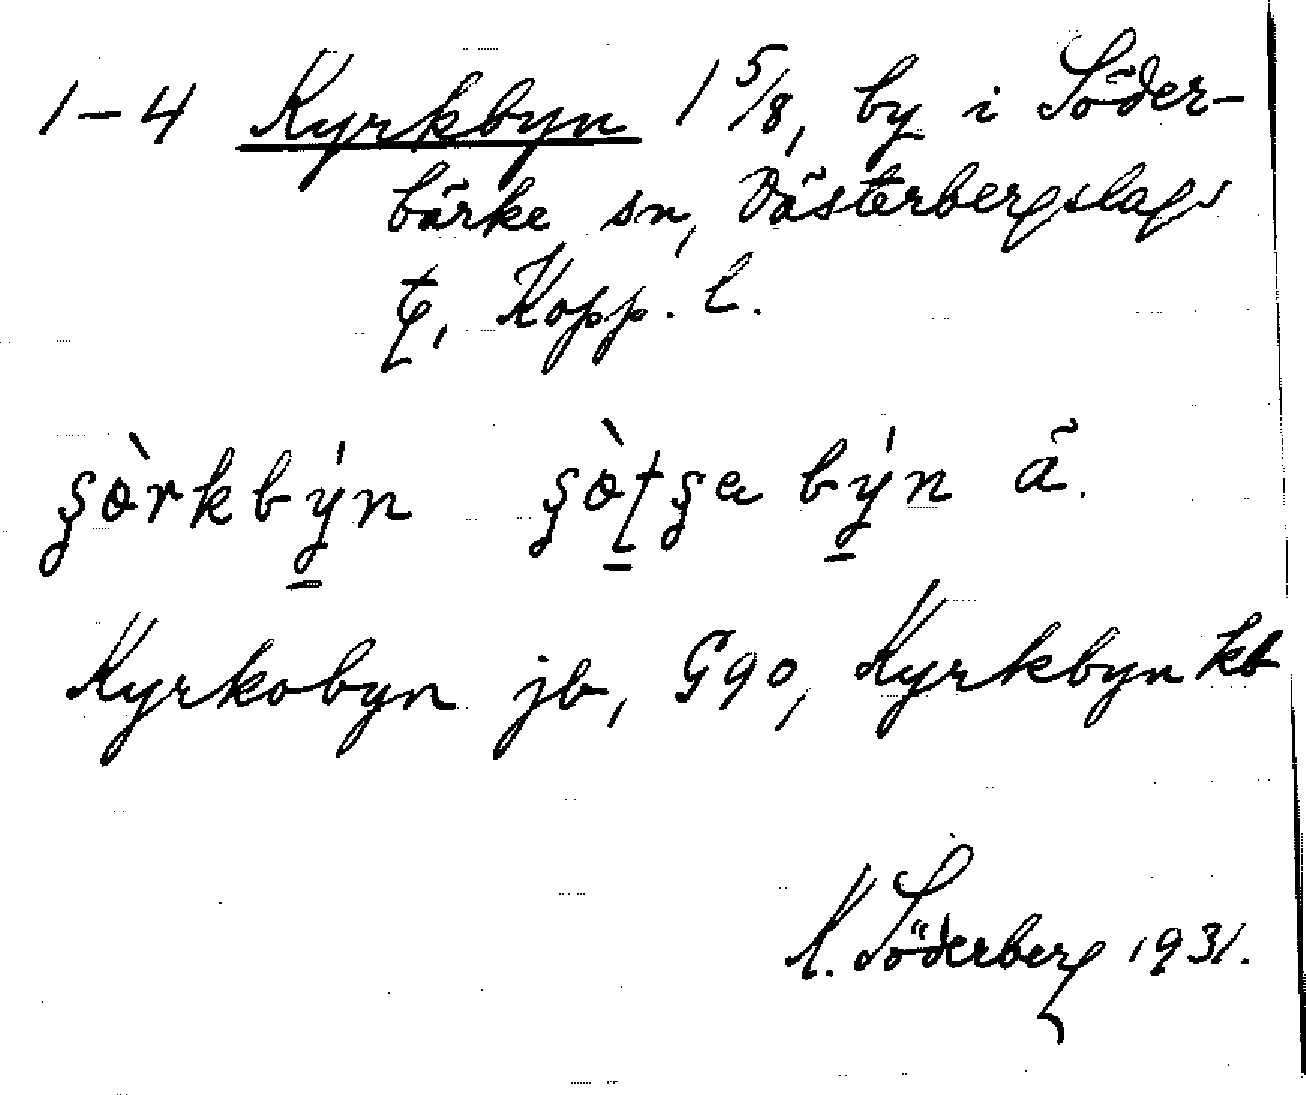 1-4 Kyrkbyn 1 5/8, by i Söder-
bärke sn, Västerbergslags
tg, Kopp. l.
byn ä.
Kyrkobyn jb, G90, Kyrkbyn kb
K. Söderberg 1931.